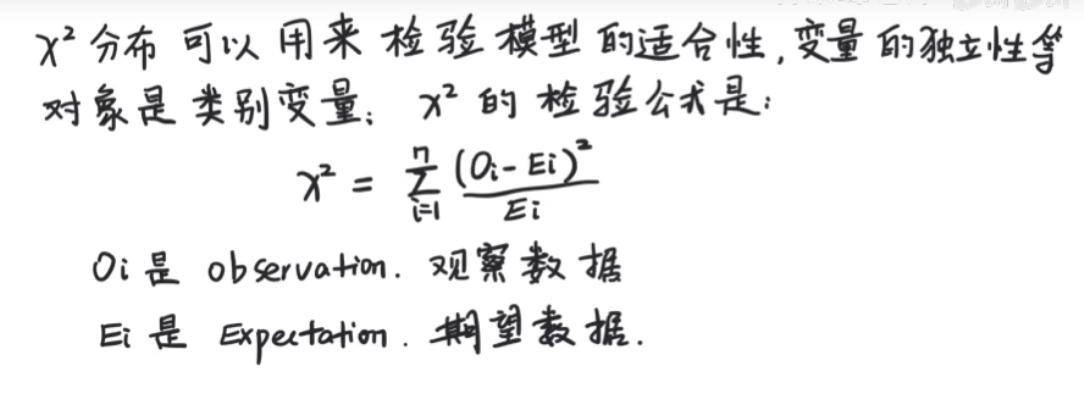 χ² 分布 可以 用来 检验 模型 的适合性,变量 的独立性等
对象是 类别变量; χ² 的 检验公式是:
χ² = Σᵢ₌₁ⁿ (Oi - Ei)² / Ei
Oi 是 observation. 观察数据
Ei 是 Expectation. 期望数据.